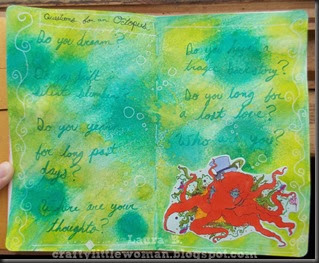 Questions for an Octopus
Do you dream?
Do you
silent
Do you yearn
for long past
days?
Where are your
thoughts?
Do you have a
tragic backstory?
Do you long for
a lost love?
Who are you?
Laura B.
craftylittlewoman.blogspot.com